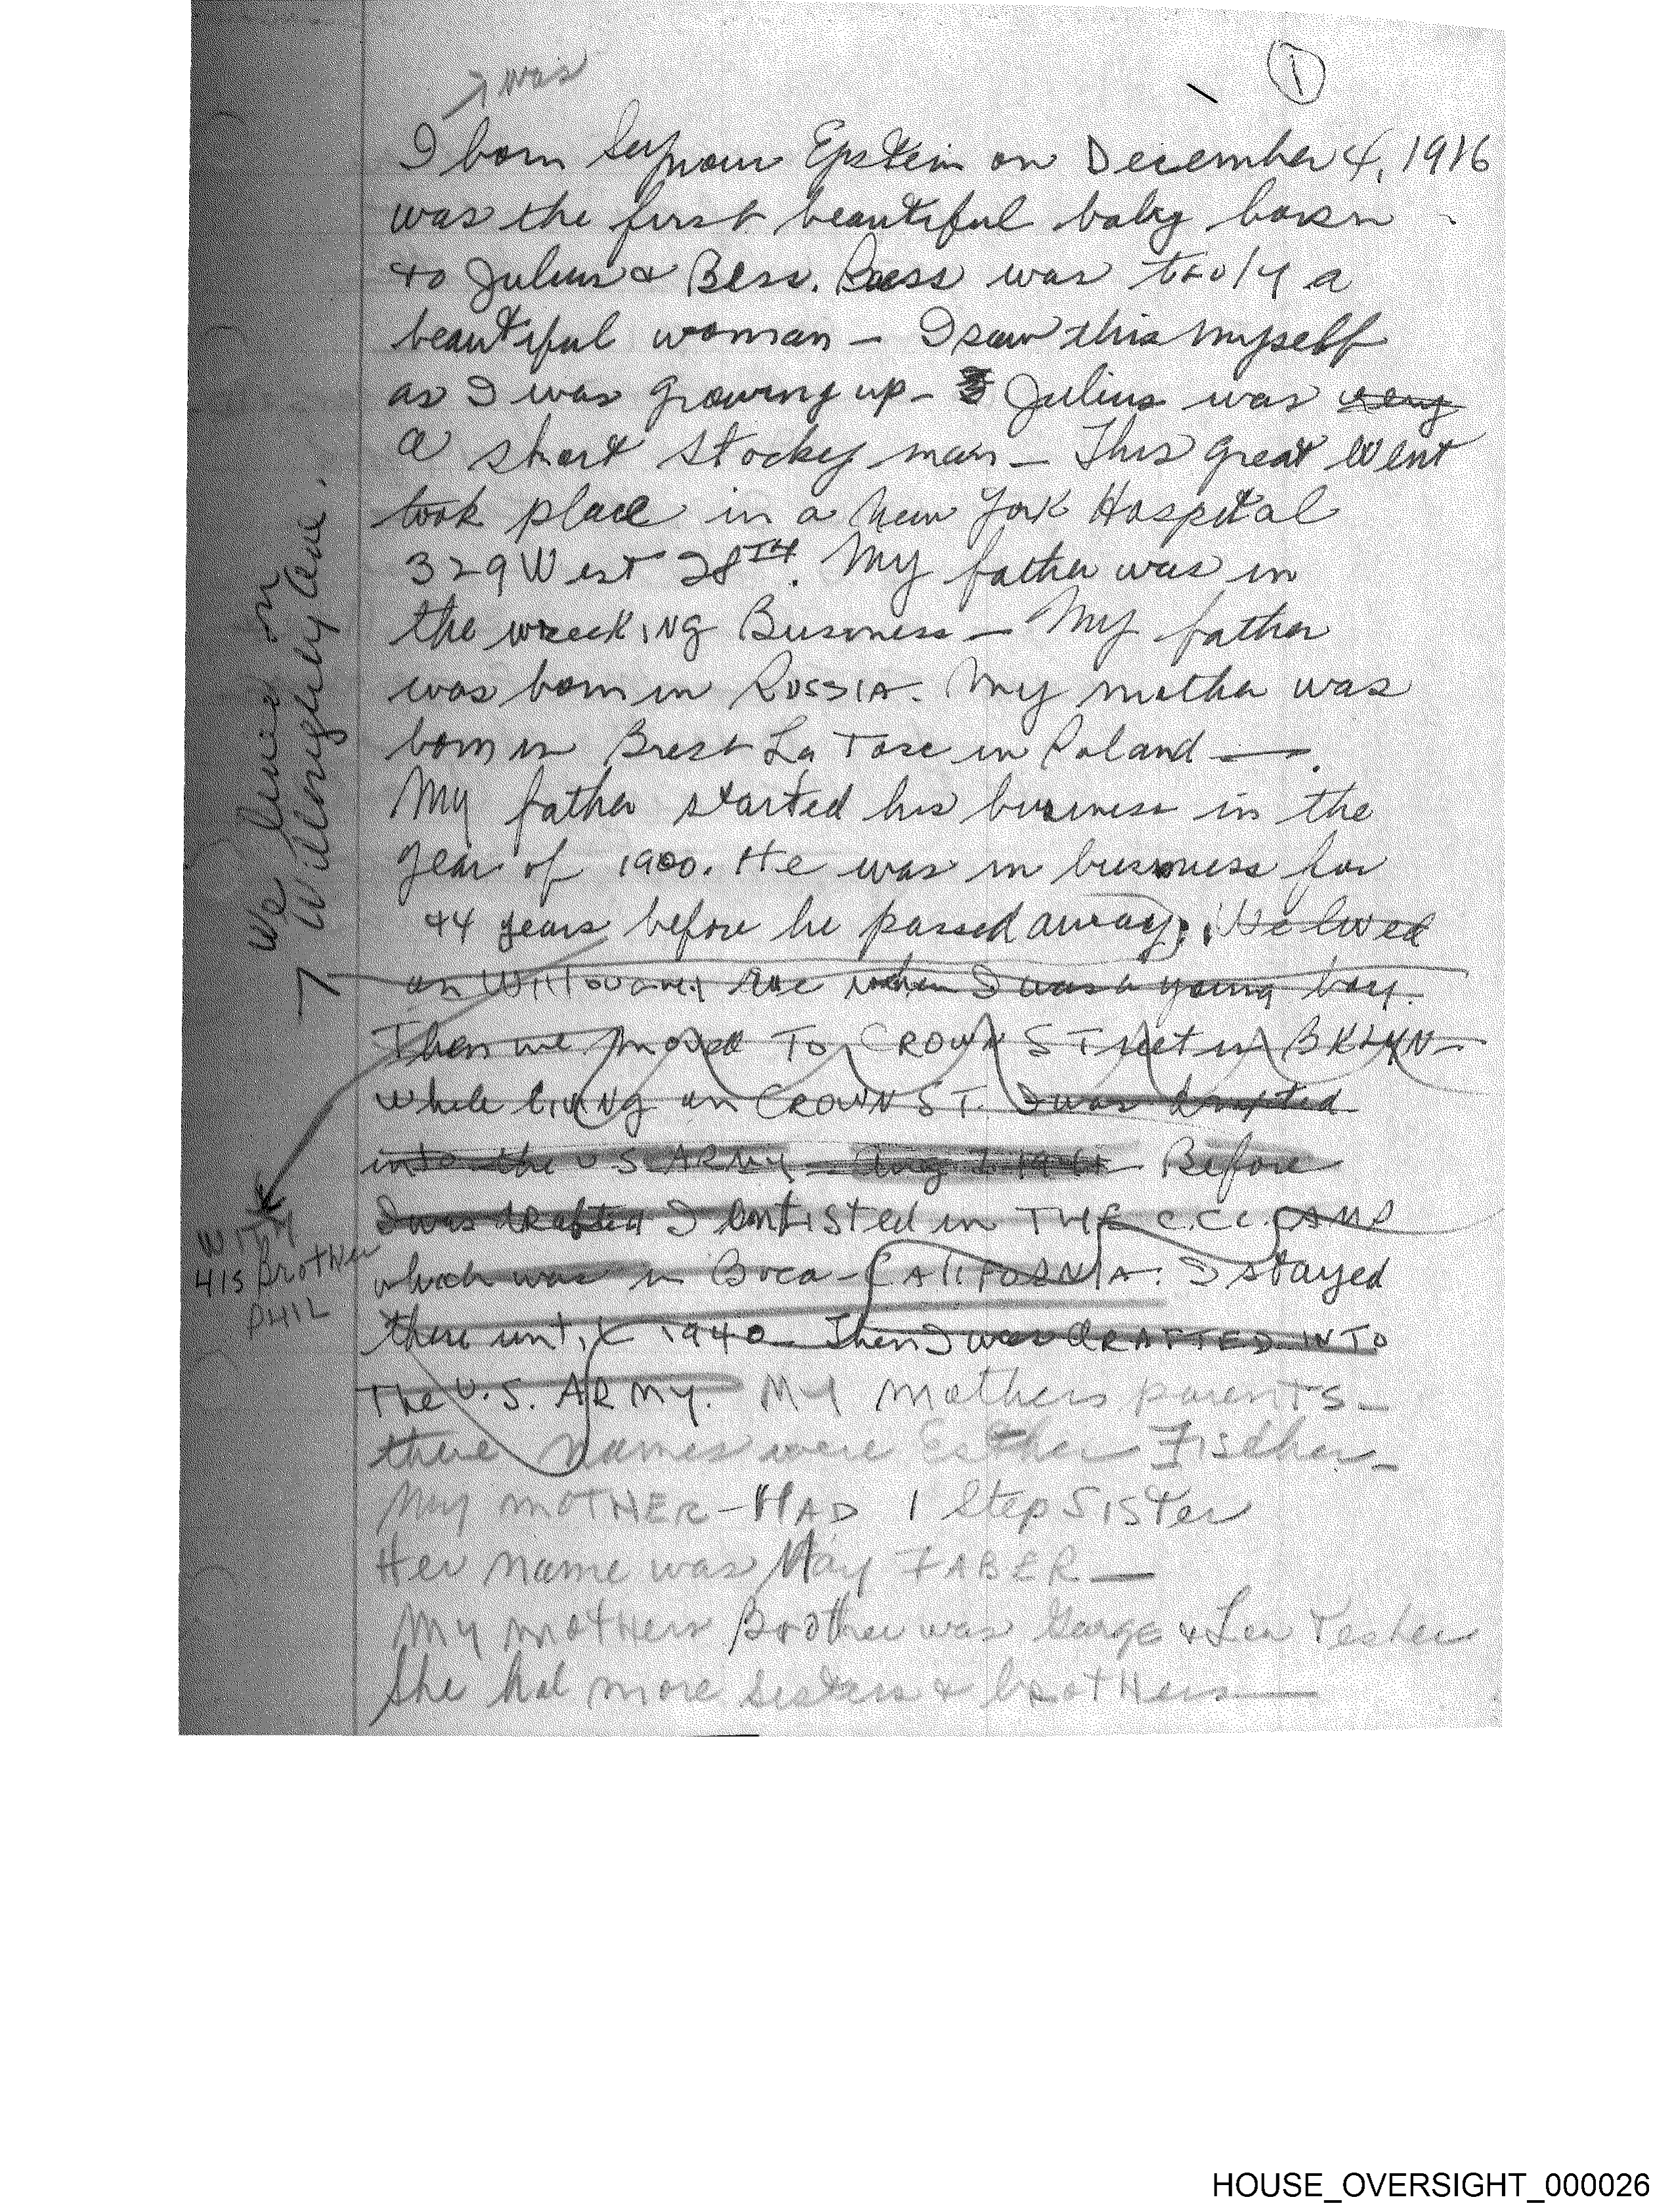 was
1
I born Seymour Epstein on December 4, 1916
was the first beautiful baby born
to Julius & Bess. Bess was truly a
beautiful woman - I saw this myself
as I was growing up - Julius was very
a short stocky man - This great event
took place in a New York Hospital
329 West 28TH. My father was in
the wrecking Business - My father
was born in RUSSIA. My mother was
born in Brest La Tosc in Poland -.
My father started his business in the
year of 1900. He was in business for
44 years before he passed away. We lived
on Willoughby Ave when I was a young boy.
Then we moved To CROWN STreet in BKLYN -
while living on CROWN ST. I was drafted
into the US ARMY - Aug 1941 Before
I was drafted I enlisted in THE C.C.C. CAMP
which was in Boca - CALIFORNIA. I stayed
there until 1940 Then I was DRAFTED INTO
The U.S. ARMY. My mothers parents -
there names were Esther Fischer -
My MOTHER - HAD 1 Step SISTER
Her name was May FABER -
My mothers Brother was George & Leo
She had more sisters & brothers -
We lived on
Willoughby Ave.
WITH
HIS BROTHER
PHIL
HOUSE_OVERSIGHT_000026